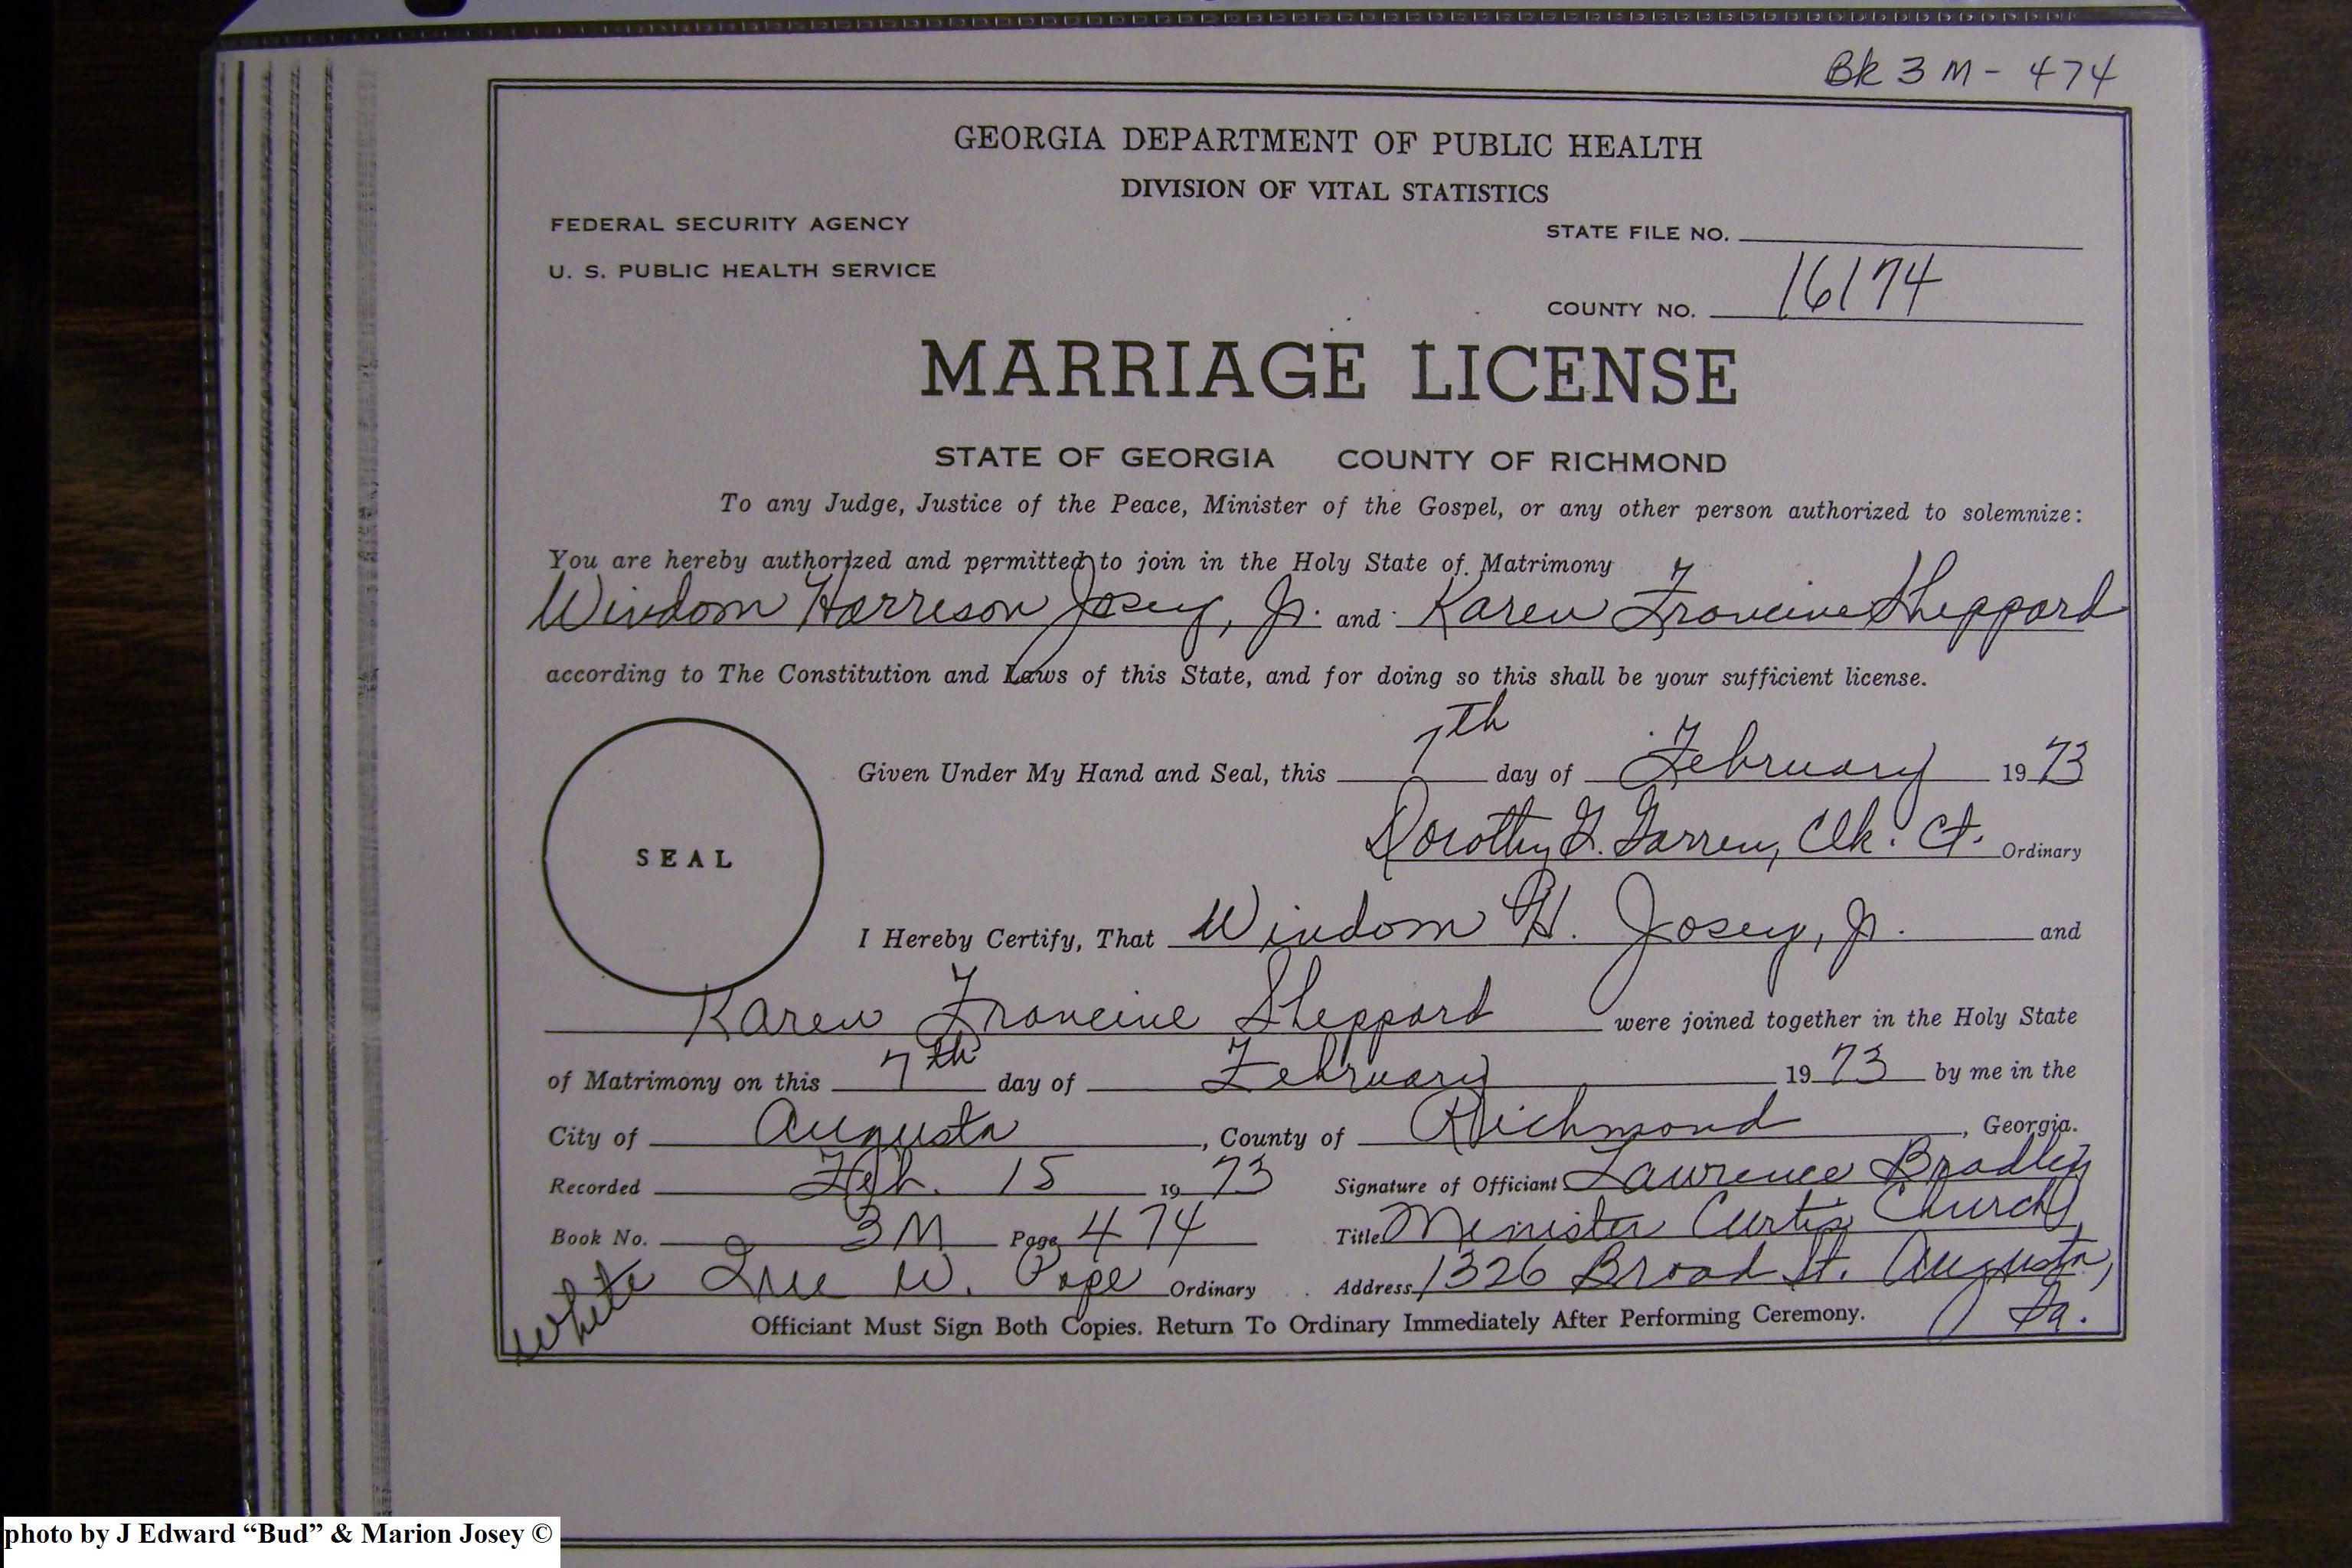 Bk 3 M - 474
GEORGIA DEPARTMENT OF PUBLIC HEALTH
DIVISION OF VITAL STATISTICS
FEDERAL SECURITY AGENCY
STATE FILE NO.
U. S. PUBLIC HEALTH SERVICE
COUNTY NO. 16174
MARRIAGE LICENSE
STATE OF GEORGIA COUNTY OF RICHMOND
To any Judge, Justice of the Peace, Minister of the Gospel, or any other person authorized to solemnize:
You are hereby authorized and permitted to join in the Holy State of Matrimony
Windom Harrison Josey, Jr. and Karen Francine Sheppard
according to The Constitution and Laws of this State, and for doing so this shall be your sufficient license.
Given Under My Hand and Seal, this 7th day of February 1973
Dorothy Clk. Ct. Ordinary
SEAL
I Hereby Certify, That Windom H. Josey, Jr. and
Karen Francine Sheppard were joined together in the Holy State
of Matrimony on this 7th day of February 1973 by me in the
City of Augusta, County of Richmond, Georgia.
Recorded Feb. 15 1973 Signature of Officiant Lawrence Bradley
Book No. 3M Page 474 Title Minister Curtis Church
White W. Pope Ordinary Address 1326 Broad St. Augusta,
Ga.
Officiant Must Sign Both Copies. Return To Ordinary Immediately After Performing Ceremony.
photo by J Edward “Bud” & Marion Josey ©